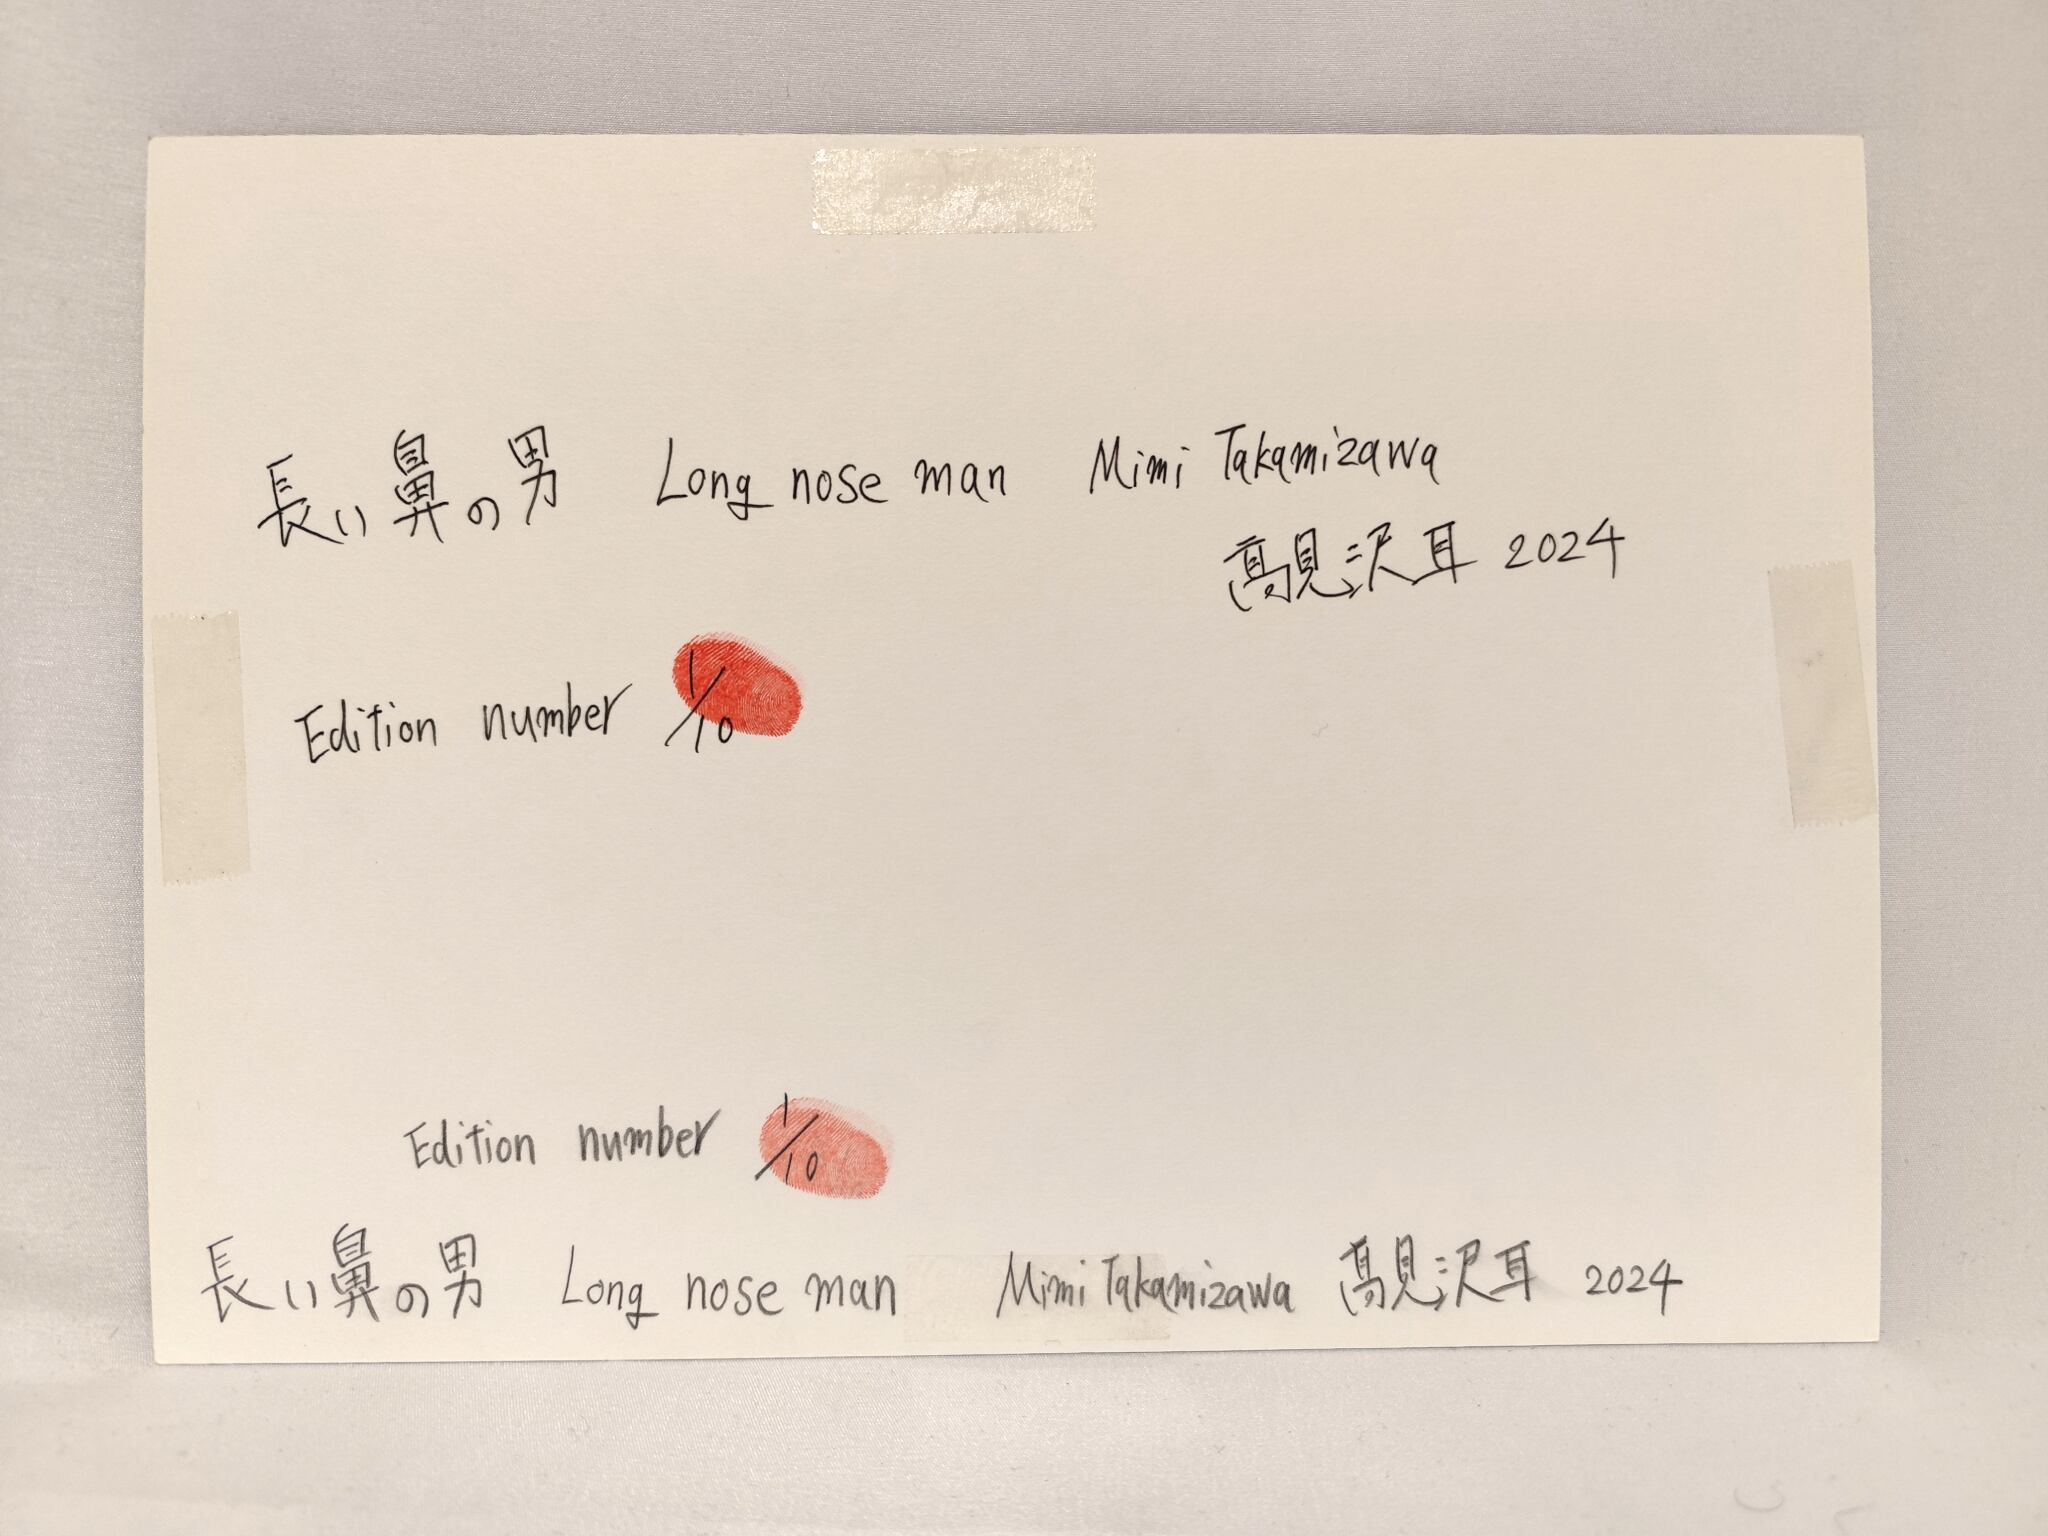 長い鼻の男 Long nose man Mimi Takamizawa
髙見沢耳 2024
Edition number 1/10
Edition number 1/10
長い鼻の男 Long nose man Mimi Takamizawa 髙見沢耳 2024